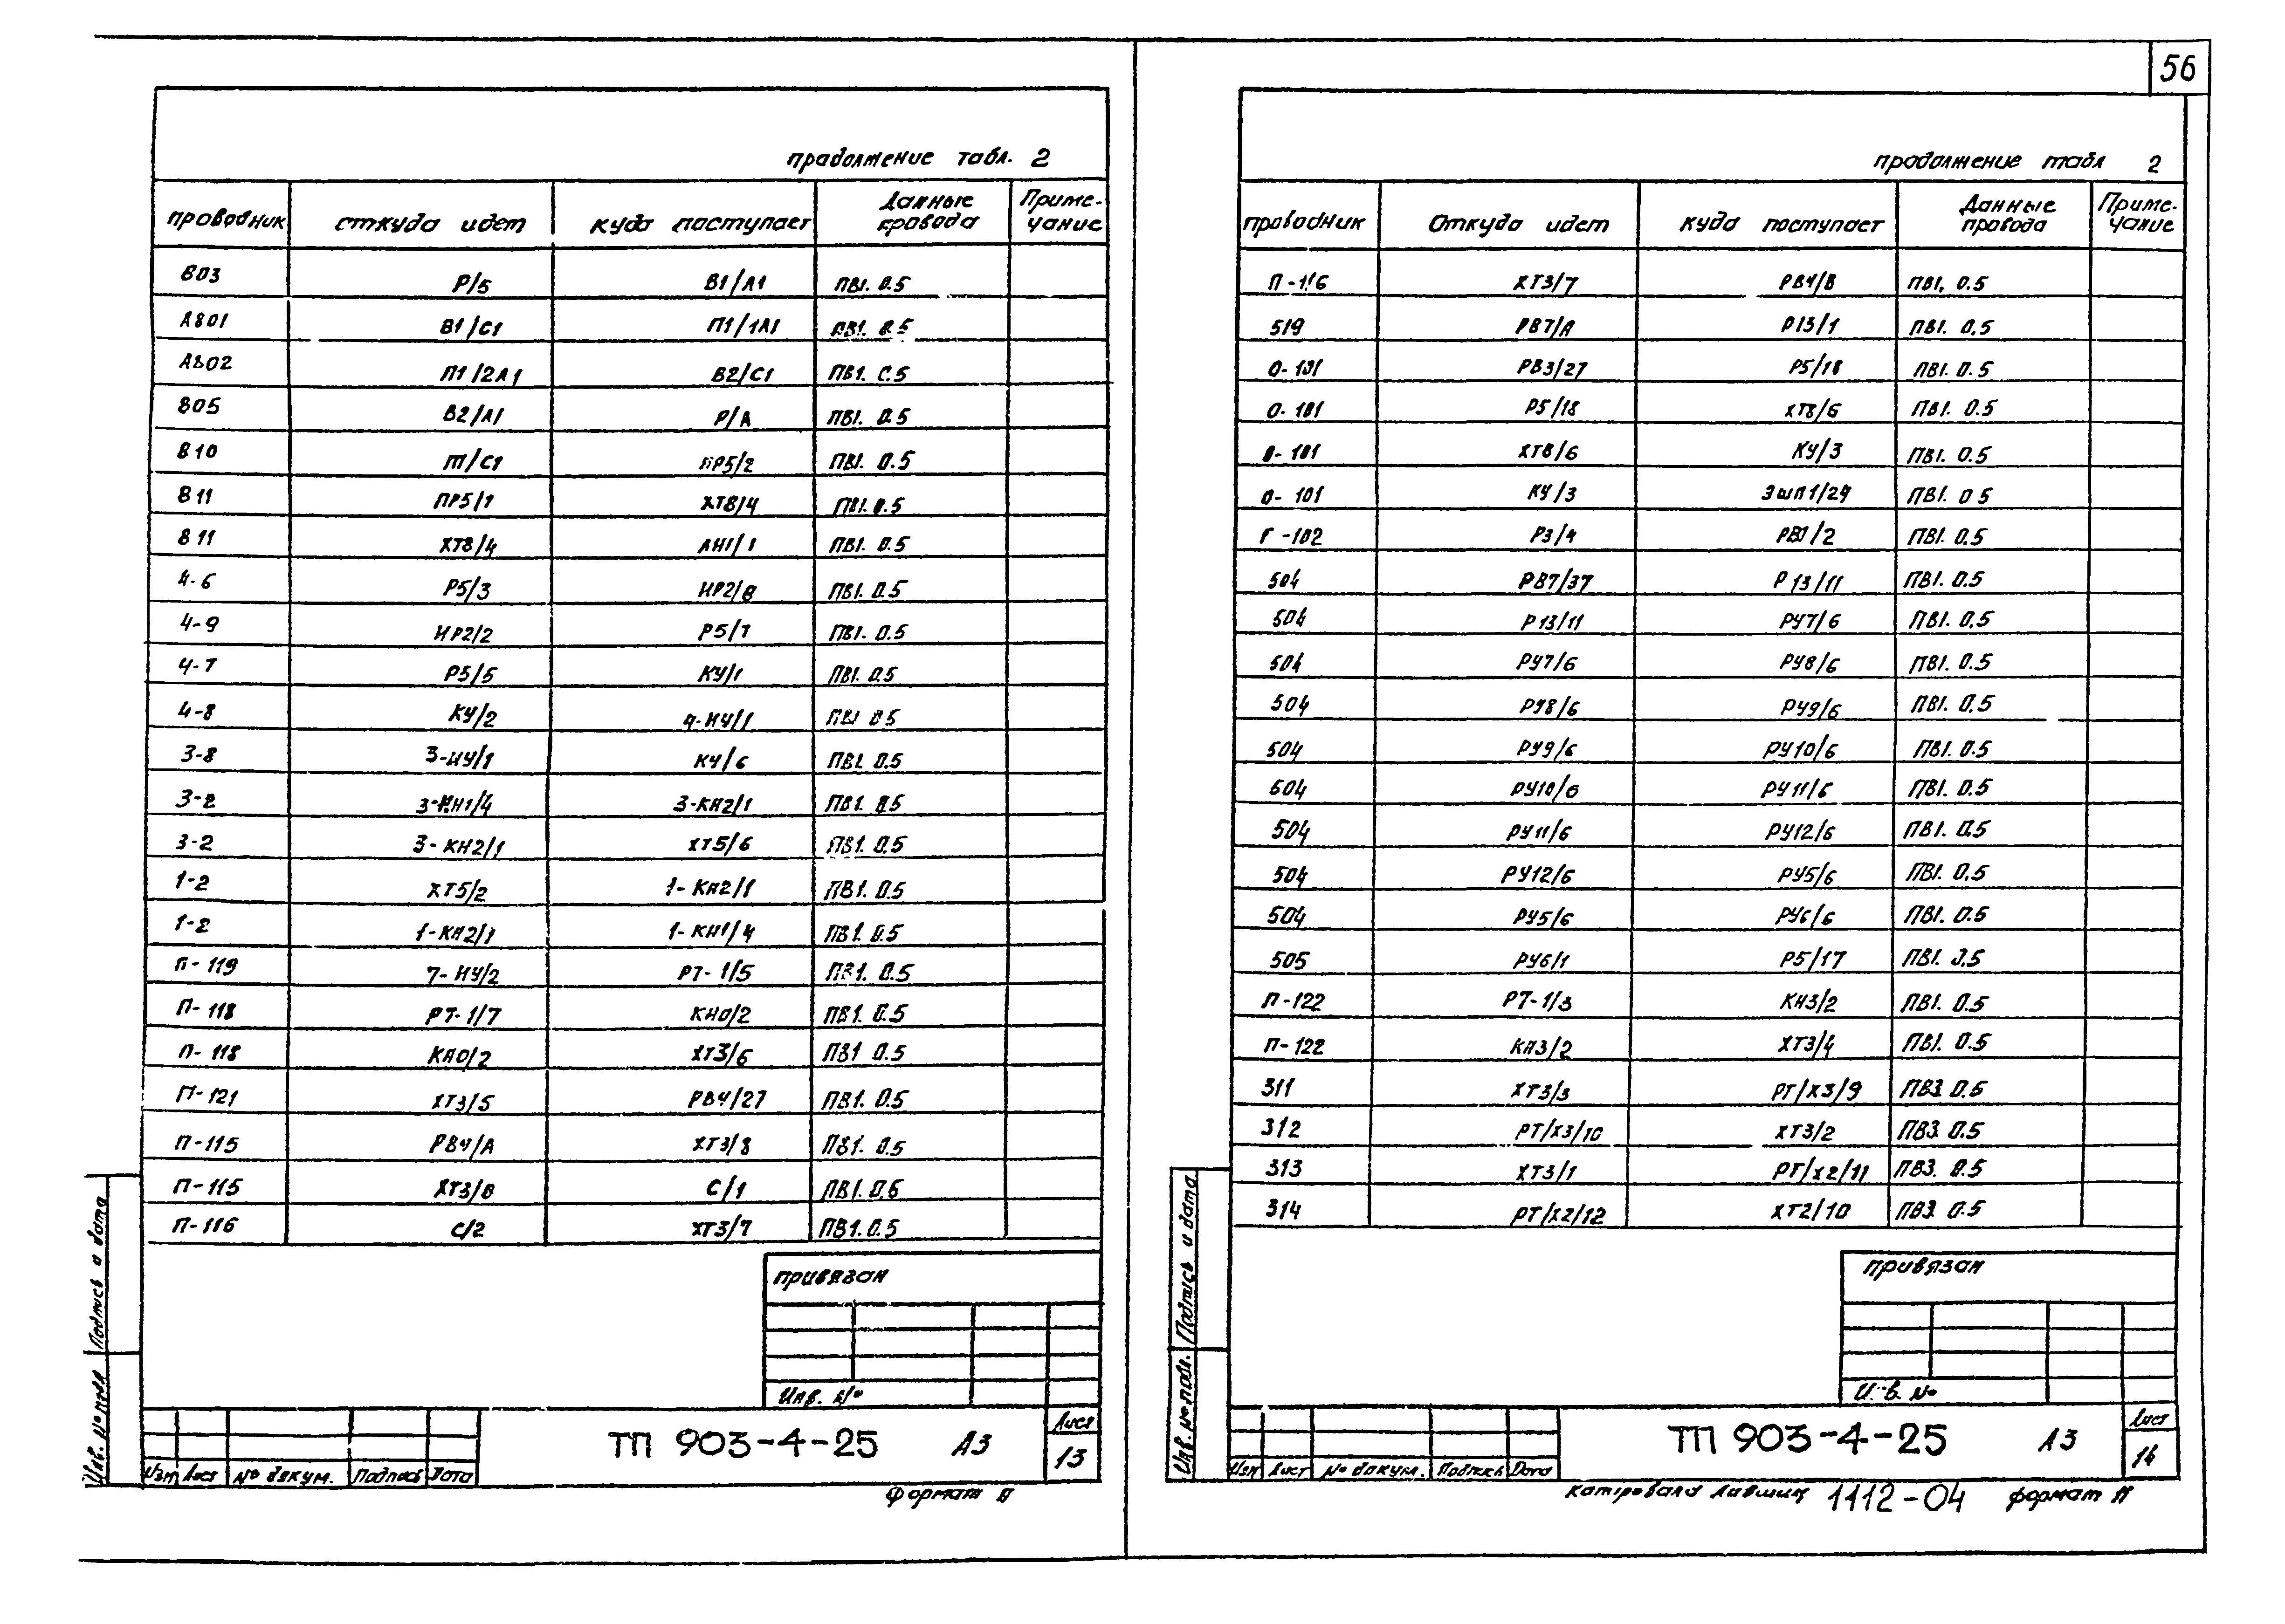 56
продолжение табл. 2
проводник откуда идет куда поступает Данные провода Приме-чание
803 Р/5 В1/А1 ПВ1. 0.5
А801 В1/С1 П1/1А1 ПВ1. 0.5
А802 П1/2А1 В2/С1 ПВ1. 0.5
805 В2/А1 Р/А ПВ1. 0.5
810 П1/С1 ПР5/2 ПВ1. 0.5
811 ПР5/1 ХТ8/4 ПВ1. 0.5
811 ХТ8/4 АН1/1 ПВ1. 0.5
4-6 Р5/3 ИР2/8 ПВ1. 0.5
4-9 ИР2/2 Р5/7 ПВ1. 0.5
4-7 Р5/5 КУ/1 ПВ1. 0.5
4-8 КУ/2 4-ИУ/1 ПВ1 0.5
3-8 3-ИУ/1 КУ/6 ПВ1. 0.5
3-2 3-КН1/4 3-КН2/1 ПВ1. 0.5
3-2 3-КН2/1 ХТ5/6 ПВ1. 0.5
1-2 ХТ5/2 1-КН2/1 ПВ1. 0.5
1-2 1-КН2/1 1-КН1/4 ПВ1. 0.5
П-119 7-ИУ/2 РТ-1/5 ПВ1. 0.5
П-118 РТ-1/7 КН0/2 ПВ1. 0.5
П-118 КН0/2 ХТ3/6 ПВ1 0.5
П-121 ХТ3/5 РВ4/27 ПВ1. 0.5
П-115 РВ4/А ХТ3/8 ПВ1. 0.5
П-115 ХТ3/8 С/1 ПВ1. 0.5
П-116 С/2 ХТ3/7 ПВ1. 0.5
привязан
Инв. №
ТП 903-4-25 А3
Лист
13
Изм Лист № докум. Подпись Дата
Формат 11
Подпись и дата
Инв. № подл
продолжение табл 2
проводник Откуда идет куда поступает Данные провода Приме-чание
П-116 ХТ3/7 РВ4/В ПВ1, 0.5
519 РВ7/А Р13/1 ПВ1. 0.5
0-101 РВ3/27 Р5/18 ПВ1. 0.5
0-101 Р5/18 ХТ8/6 ПВ1. 0.5
0-101 ХТ8/6 КУ/3 ПВ1. 0.5
0-101 КУ/3 ЭШП1/29 ПВ1. 0 5
Г-102 Р3/4 РВ1/2 ПВ1. 0.5
504 РВ7/37 Р13/11 ПВ1. 0.5
504 Р13/11 РУ7/6 ПВ1. 0.5
504 РУ7/6 РУ8/6 ПВ1. 0.5
504 РУ8/6 РУ9/6 ПВ1. 0.5
504 РУ9/6 РУ10/6 ПВ1. 0.5
504 РУ10/6 РУ11/6 ПВ1. 0.5
504 РУ11/6 РУ12/6 ПВ1. 0.5
504 РУ12/6 РУ5/6 ПВ1. 0.5
504 РУ5/6 РУ6/6 ПВ1. 0.5
505 РУ6/1 Р5/17 ПВ1. 0.5
П-122 РТ-1/3 КН3/2 ПВ1. 0.5
П-122 КН3/2 ХТ3/4 ПВ1. 0.5
311 ХТ3/3 РТ/Х3/9 ПВ3 0.5
312 РТ/Х3/10 ХТ3/2 ПВ3 0.5
313 ХТ3/1 РТ/Х2/11 ПВ3. 0.5
314 РТ/Х2/12 ХТ2/10 ПВ3 0.5
привязан
И. в. №
ТП 903-4-25 А3
Лист
14
Изм Лист № докум. Подпись Дата
копировала 1112-04 формат 11
Подпись и дата
Инв. № подл.